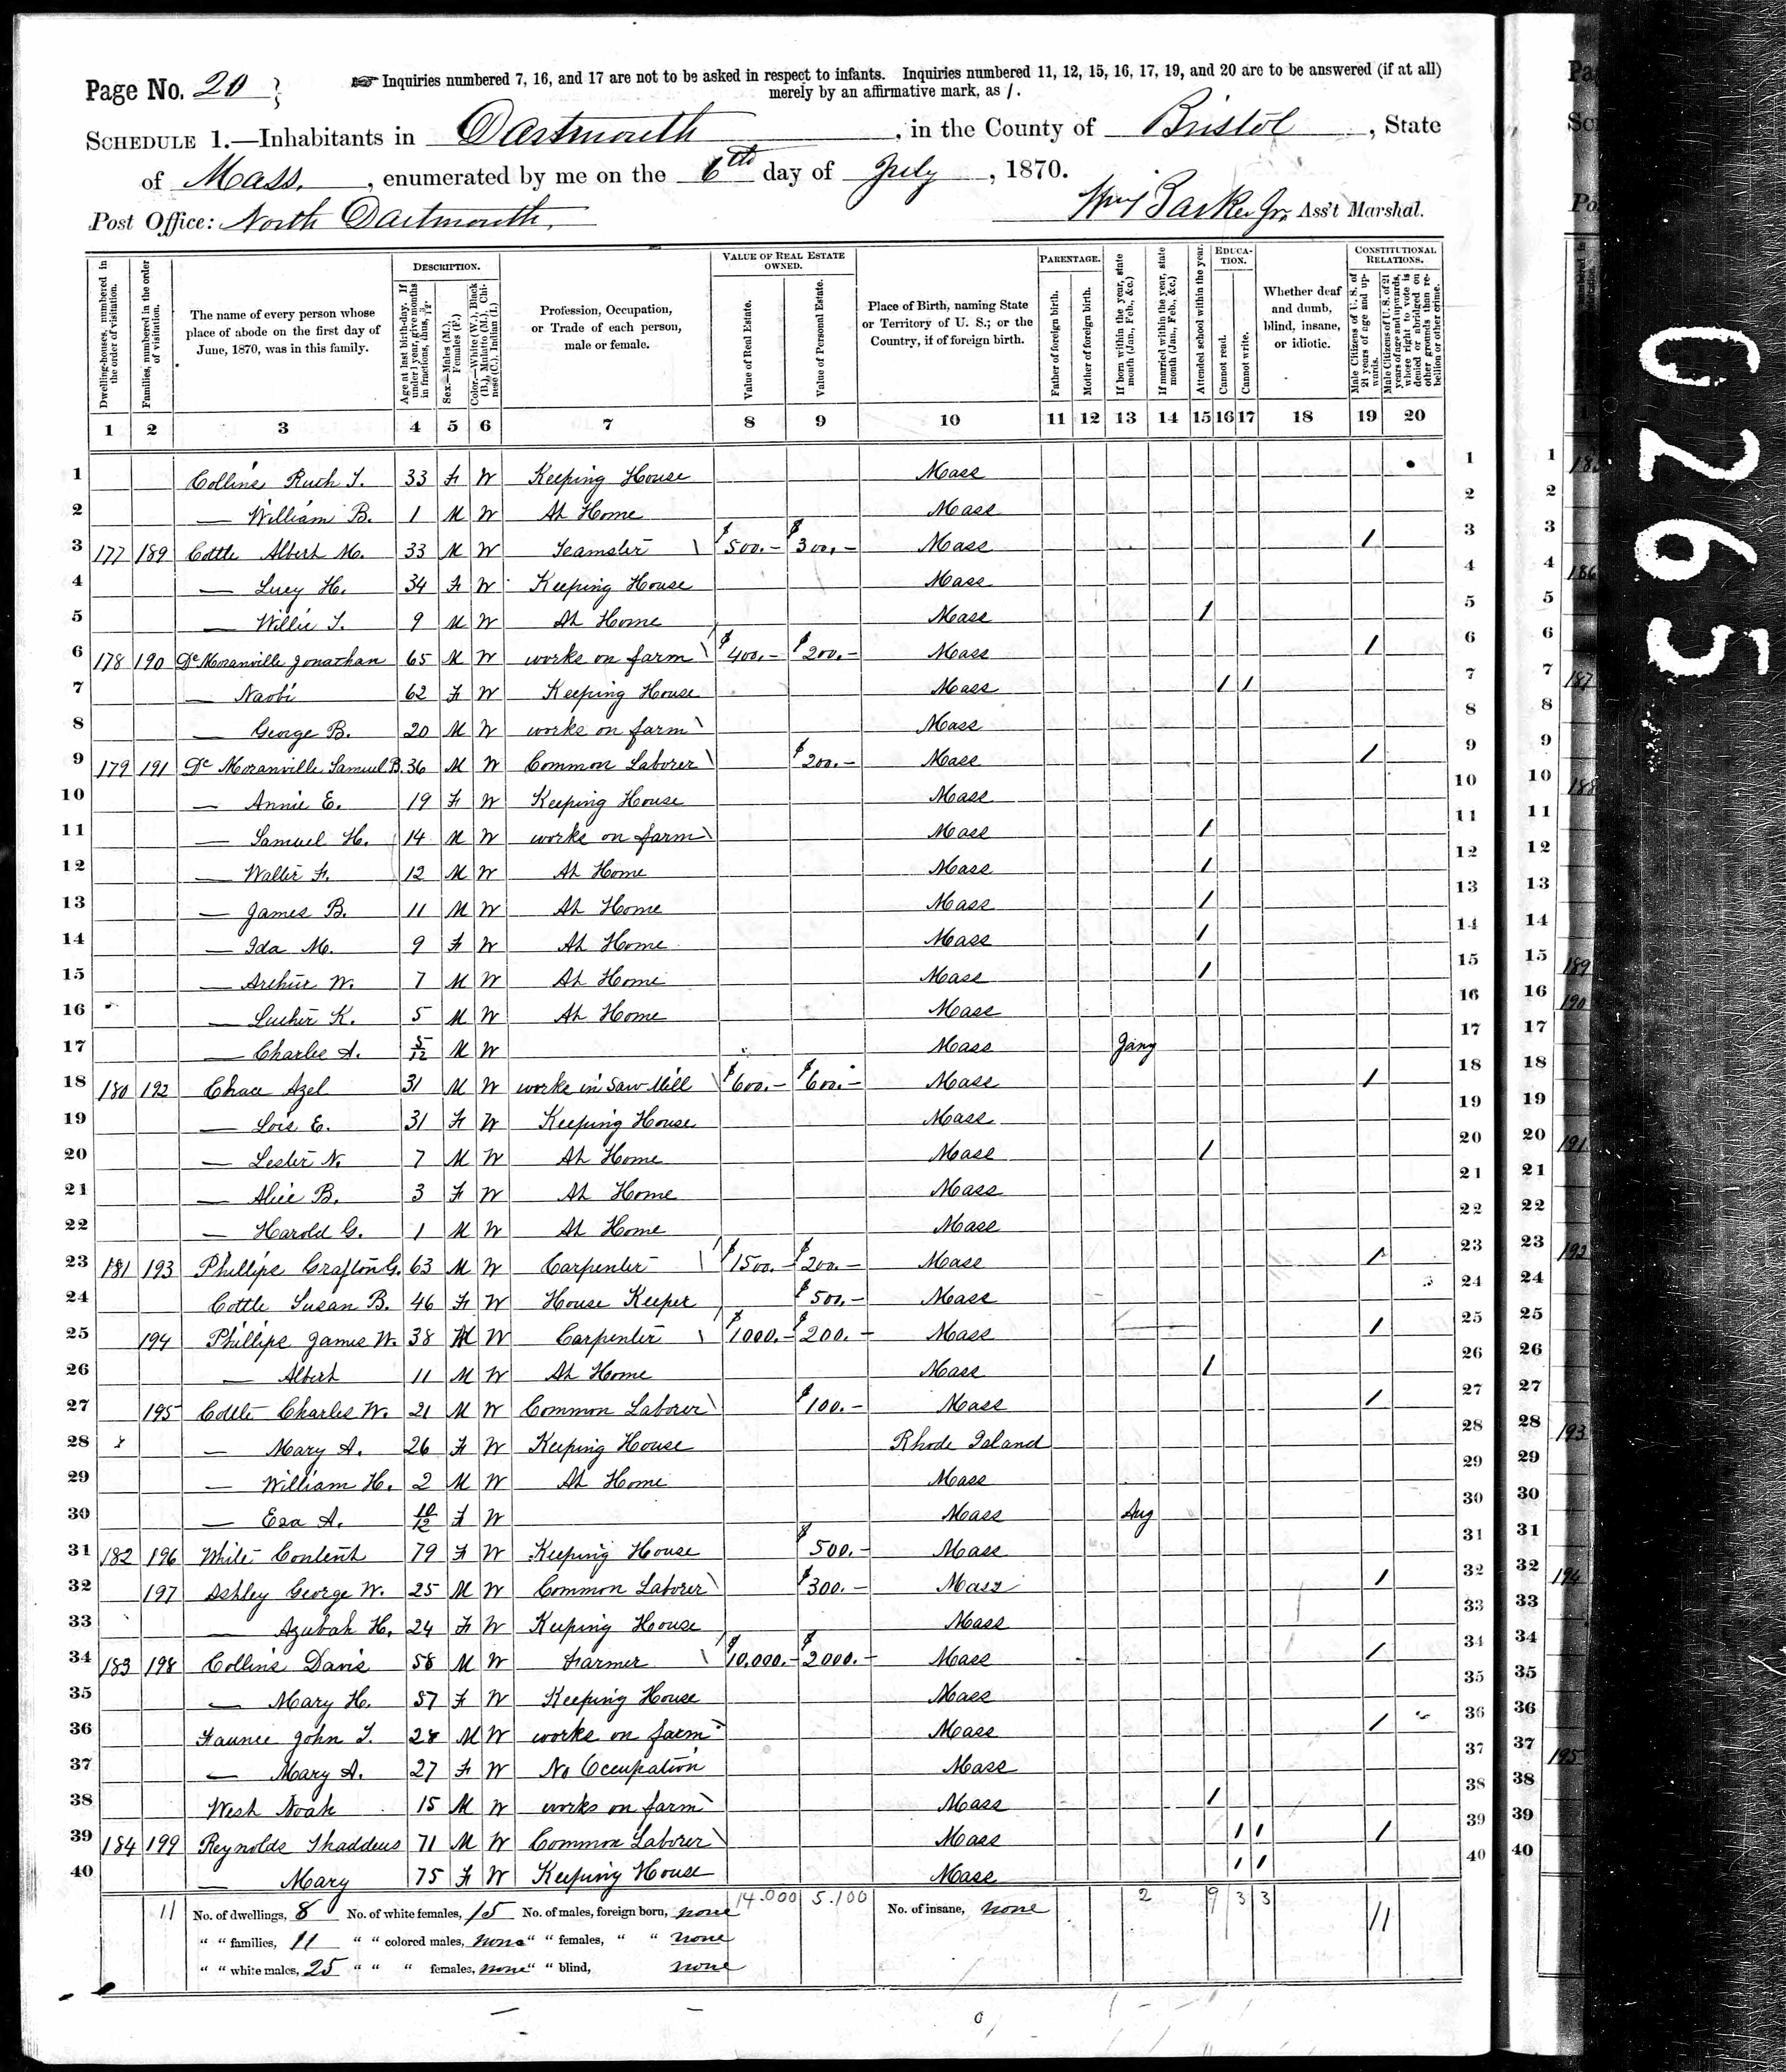 Page No. 20
☞ Inquiries numbered 7, 16, and 17 are not to be asked in respect to infants. Inquiries numbered 11, 12, 15, 16, 17, 19, and 20 are to be answered (if at all)
merely by an affirmative mark, as /.
SCHEDULE 1.—Inhabitants in Dartmouth, in the County of Bristol, State
of Mass., enumerated by me on the 6th day of July, 1870.
Post Office: North Dartmouth, Barker Jr., Ass't Marshal.
DESCRIPTION. VALUE OF REAL ESTATE OWNED. PARENTAGE. EDUCATION. CONSTITUTIONAL RELATIONS.
Dwelling-houses, numbered in the order of visitation.
Families, numbered in the order of visitation.
The name of every person whose place of abode on the first day of June, 1870, was in this family.
Age at last birth-day. If under 1 year, give months in fractions, thus, 3/12.
Sex.—Males (M.), Females (F.)
Color.—White (W.), Black (B.), Mulatto (M.), Chinese (C.), Indian (I.)
Profession, Occupation, or Trade of each person, male or female.
Value of Real Estate.
Value of Personal Estate.
Place of Birth, naming State or Territory of U. S.; or the Country, if of foreign birth.
Father of foreign birth.
Mother of foreign birth.
If born within the year, state month (Jan., Feb., &c.)
If married within the year, state month (Jan., Feb., &c.)
Attended school within the year.
Cannot read.
Cannot write.
Whether deaf and dumb, blind, insane, or idiotic.
Male Citizens of U. S. of 21 years of age and upwards.
Male Citizens of U. S. of 21 years of age and upwards, whose right to vote is denied or abridged on other grounds than rebellion or other crime.
1 2 3 4 5 6 7 8 9 10 11 12 13 14 15 16 17 18 19 20
1 Collins Ruth T. 33 F W Keeping House Mass 1
2 — William B. 1 M W At Home Mass 2
3 177 189 Cottle Albert M. 33 M W Teamster $500.— $300.— Mass / 3
4 — Lucy H. 34 F W Keeping House Mass 4
5 — Willie T. 9 M W At Home Mass / 5
6 178 190 De Moranville Jonathan 65 M W works on farm $400.— $200.— Mass / 6
7 — Naobi 62 F W Keeping House Mass / / 7
8 — George B. 20 M W works on farm Mass 8
9 179 191 De Moranville Samuel B. 36 M W Common Laborer $200.— Mass / 9
10 — Annie E. 19 F W Keeping House Mass 10
11 — Samuel H. 14 M W works on farm Mass / 11
12 — Walter F. 12 M W At Home Mass / 12
13 — James B. 11 M W At Home Mass / 13
14 — Ida M. 9 F W At Home Mass / 14
15 — Arthur W. 7 M W At Home Mass / 15
16 — Luther K. 5 M W At Home Mass 16
17 — Charles A. 5/12 M W Mass Jany 17
18 180 192 Chace Azel 31 M W works in Saw Mill $600.— $600.— Mass / 18
19 — Lois E. 31 F W Keeping House Mass 19
20 — Lester N. 7 M W At Home Mass / 20
21 — Alice B. 3 F W At Home Mass 21
22 — Harold G. 1 M W At Home Mass 22
23 181 193 Phillips Grafton G. 63 M W Carpenter $1500.— $200.— Mass / 23
24 Cottle Susan B. 46 F W House Keeper $500.— Mass 24
25 194 Phillips James W. 38 M W Carpenter $1000.— $200.— Mass / 25
26 — Albert 11 M W At Home Mass / 26
27 195 Cottle Charles W. 21 M W Common Laborer $100.— Mass / 27
28 — Mary A. 26 F W Keeping House Rhode Island 28
29 — William H. 2 M W At Home Mass 29
30 — Eva A. 10/12 F W Mass Aug 30
31 182 196 White Content 79 F W Keeping House $500.— Mass 31
32 197 Ashley George W. 25 M W Common Laborer $300.— Mass / 32
33 — Azubah H. 24 F W Keeping House Mass 33
34 183 198 Collins Davis 58 M W Farmer $10,000.— $2000.— Mass / 34
35 — Mary H. 57 F W Keeping House Mass 35
36 Faunce John T. 28 M W works on farm Mass / 36
37 — Mary A. 27 F W No Occupation Mass 37
38 West Noah 15 M W works on farm Mass / 38
39 184 199 Reynolds Thaddeus 71 M W Common Laborer Mass / / / 39
40 — Mary 75 F W Keeping House Mass / / 40
11 No. of dwellings, 8 No. of white females, 15 No. of males, foreign born, none 14.000 5.100 No. of insane, none 2 9 3 3 11
" " families, 11 " " colored males, none " " females, " " none
" " white males, 25 " " " females, none " " blind, none
02695